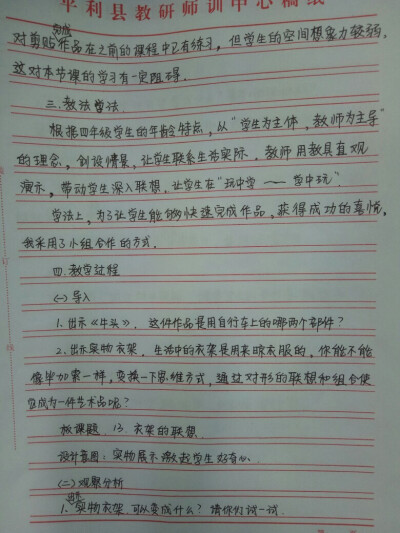 平利县教研师训中心稿纸
对剪贴完成作品在之前的课程中已有练习，但学生的空间想象力较弱，
这对本节课的学习有一定阻碍。
三、教法学法
根据四年级学生的年龄特点，从“学生为主体，教师为主导”
的理念，创设情景，让学生联系生活实际，教师用教具直观
演示，带动学生深入联想，让学生在“玩中学——学中玩”
学法上，为了让学生能够快速完成作品，获得成功的喜悦，
我采用了小组合作的方式。
四、教学过程
㈠导入
1.出示《牛头》，这件作品是用自行车上的哪两个部件？
2.出示实物衣架，生活中的衣架是用来晾衣服的，你能不能
像毕加索一样，变换一下思维方式，通过对形的联想和组合使
它成为一件艺术品呢？
板课题：13.衣架的联想
设计意图：实物展示激起学生好奇心
㈡观察分析
1.出示实物衣架，可以变成什么？请你们试一试